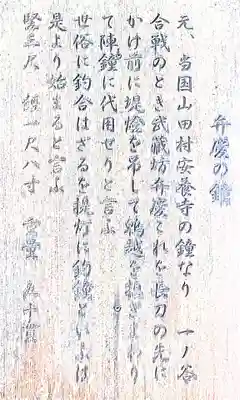 弁慶の鐘
元、当国山田村安養寺の鐘なり 一ノ谷
合戦のとき武蔵坊弁慶これを長刀の先に
かけ前に提燈を吊して鵯越を担ぎまわり
て陣鐘に代用せりと言ふ
世俗に釣合はざるを提灯に釣鐘といふは
是より始まると言ふ
竪三尺 経一尺八寸 重量 九十貫